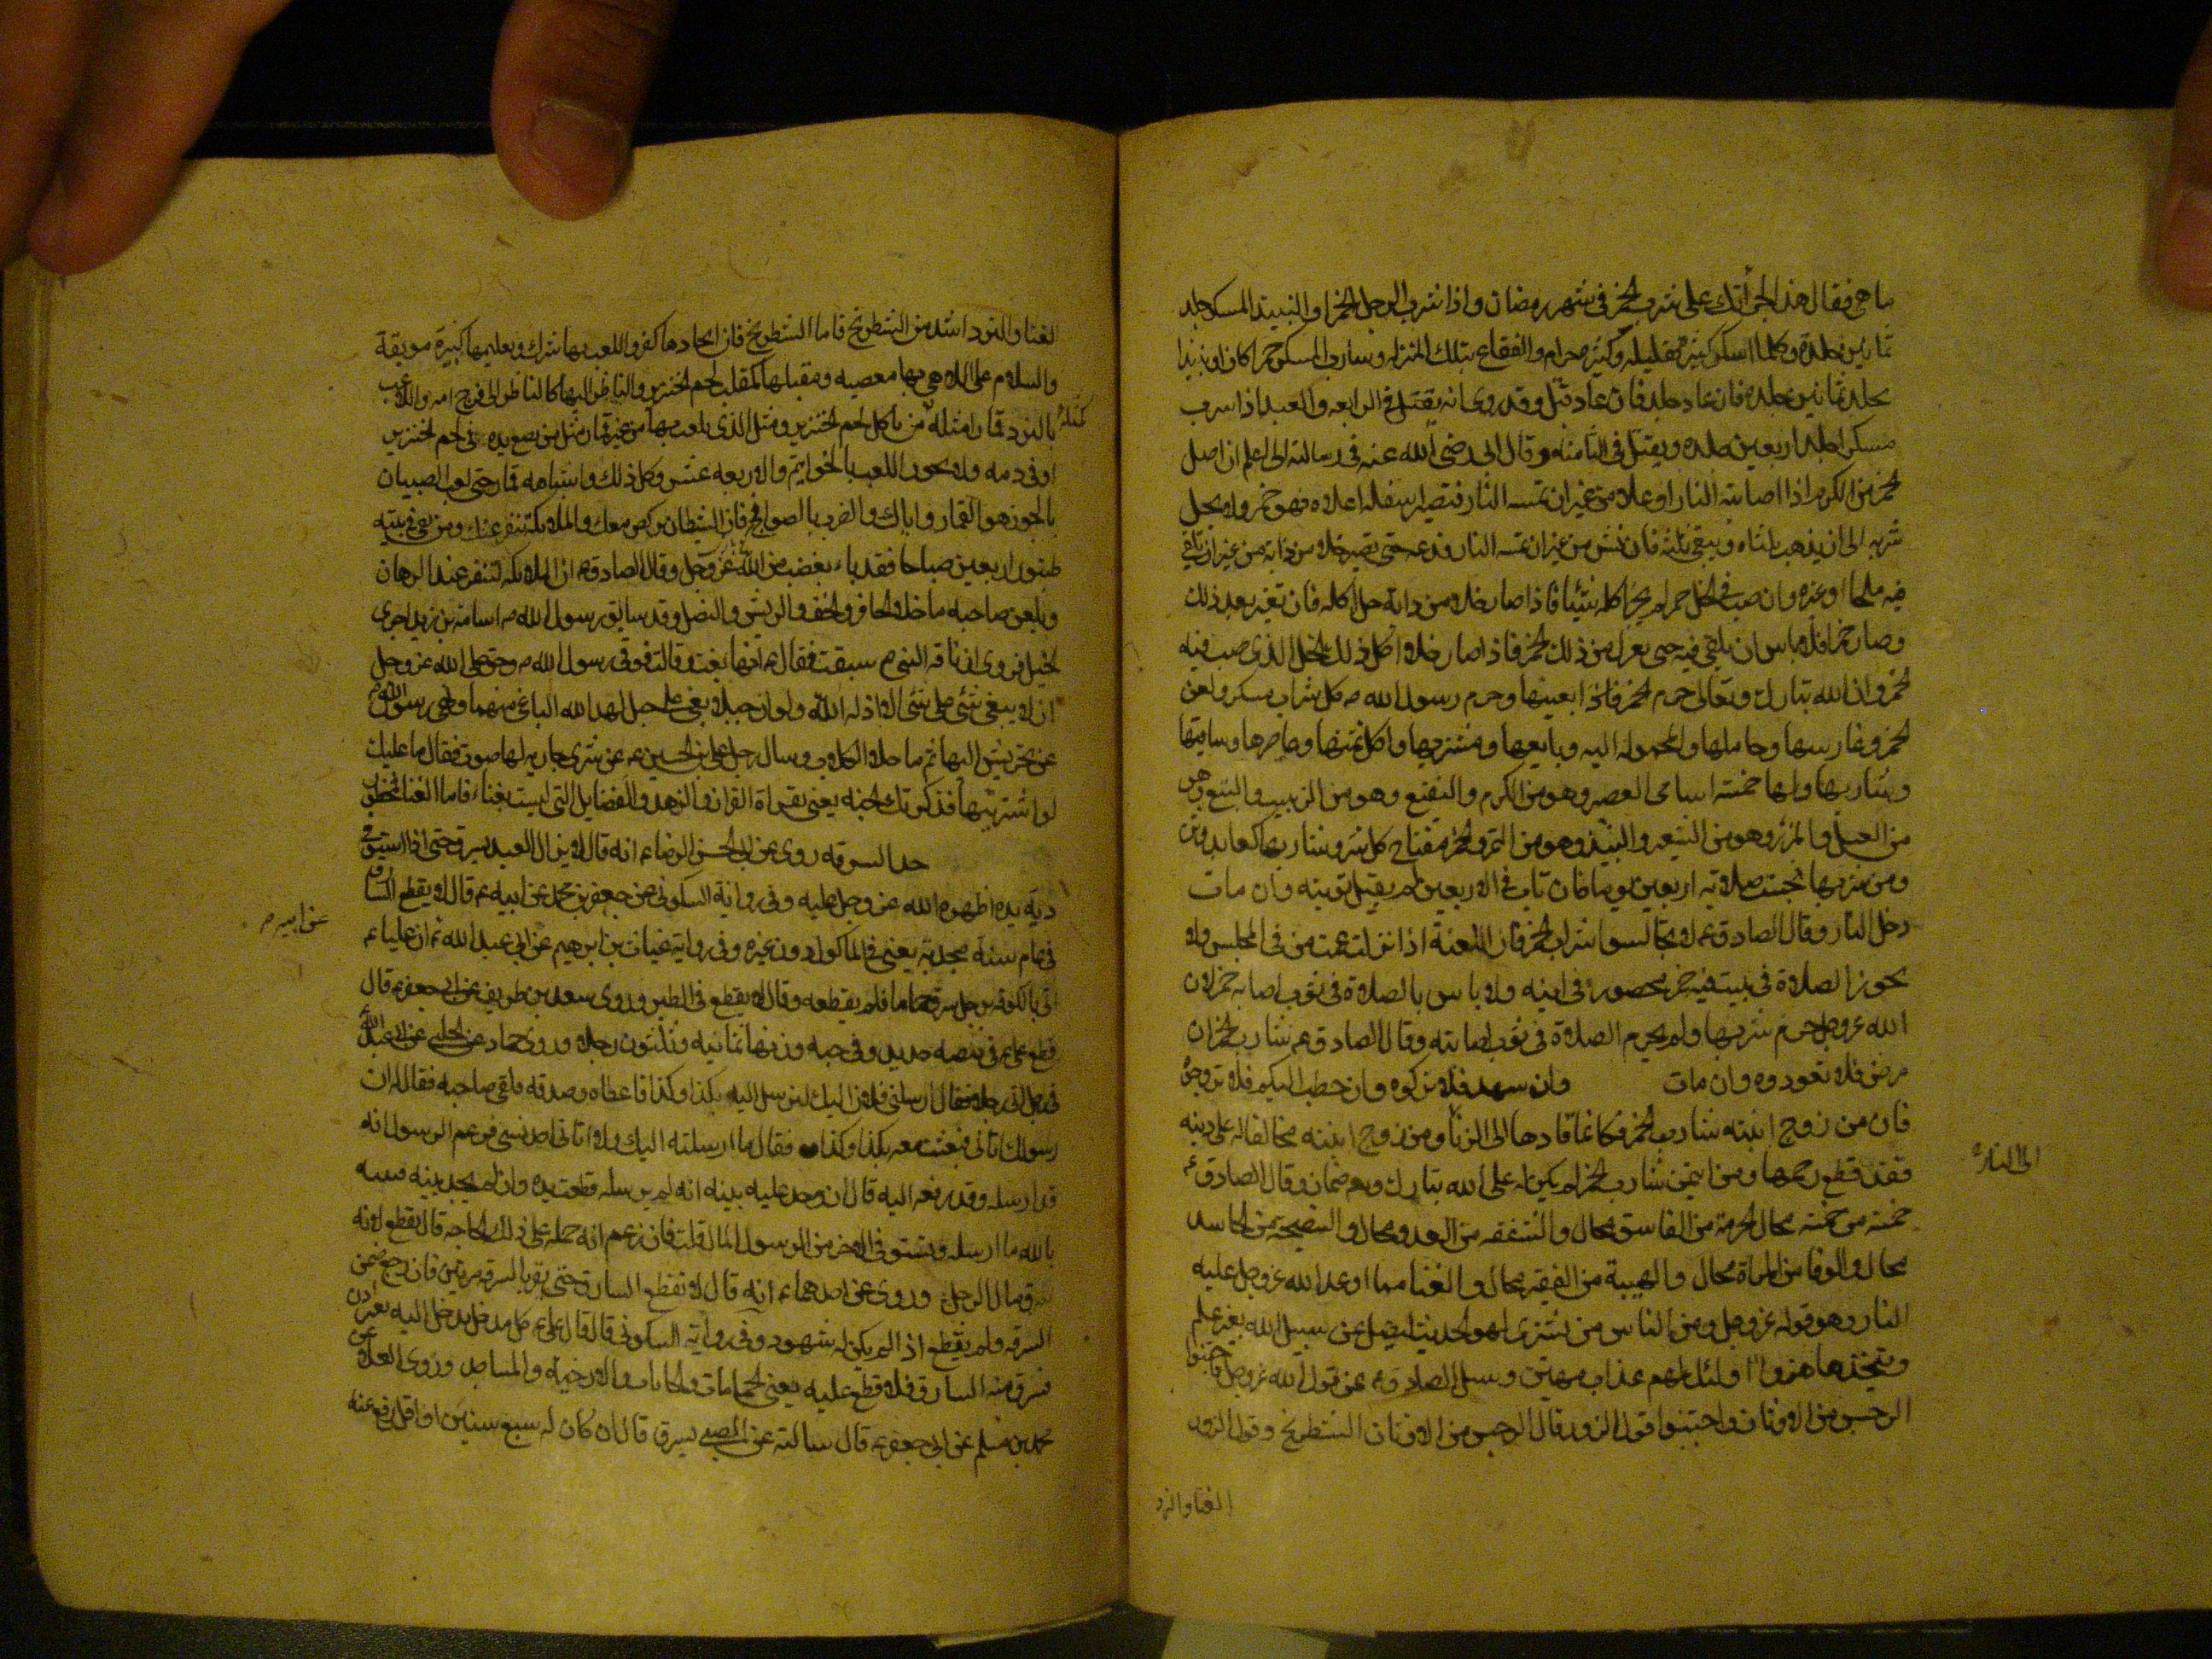 ما هي فقال هذا لجرأتك على شرب الخمر في شهر رمضان واذا شرب الرجل الخمر او النبيذ المسكر جلد
ثمانين جلدة وكلما اسكر كثيره فقليله وكثيره حرام والفقاع بتلك المنزلة وشارب المسكر خمرا كان او نبيذا
يجلد ثمانين جلدة فان عاد جلد فان عاد قتل وقد روى انه يقتل في الرابعه والعبد اذا شرب
مسكرا جلد اربعين جلده ويقتل في الثامنه وقال ابى رضى الله عنه في رسالته الى اعلم ان اصل
الخمر من الكرم اذا اصابته النار او غلا من غير ان تمسه النار فتصير اسفله اعلاه فهو خمر ولا يحل
شربه الى ان يذهب ثلثاه ويبقى ثلثه فان نش من غير ان تمسه النار فدعه حتى يصير خلا من ذاته من غير ان تلقى
فيه ملحا او غيره وان صب في الخل خمر لم يجز اكله فاذا صار خلا من ذاته حل اكله فان تغير بعد ذلك
وصار خمرا فلا باس ان يلقى فيه حتى يعزل من ذلك الخمر فاذا صار خلا اكل ذلك الخل الذى صب فيه
الخمر وان الله تبارك وتعالى حرم الخمر بعينها وحرم رسول الله ص كل شراب مسكر ولعن
الخمر وغارسها وحاملها والمحموله اليه وبايعها ومشتريها واكل ثمنها وعاصرها وساقيها
وشاربها ولها خمسة اسامى العصير وهو من الكرم والنقيع وهو من الزبيب والبتع وهى
من العسل والمزر وهو من الشعير والنبيذ وهو من التمر والخمر مفتاح كل شر وشاربها كعابد وثن
ومن شربها حبست صلاته اربعين يوما فان تاب في الاربعين لم يقبل توبته وان مات
دخل النار وقال الصادق ع لا تجالسوا شراب الخمر فان اللعنة اذا نزلت عمت من في المجلس ولا
يجوز الصلاة في بيت فيه خمر محصور في انيه ولا باس بالصلاة في ثوب اصابه خمر لان
الله عز وجل حرم شربها ولم يحرم الصلاة في ثوب اصابته وقال الصادق ع شارب الخمر ان
مرض فلا تعودوه وان مات وان شهد فلا تزكوه وان خطب اليكم فلا تزوجوه
فان من زوج ابنته شارب الخمر فكانما قادها الى الزنا ومن زوج ابنته مخالفا له على دينه
الى النار
فقد قطع رحمها ومن ايتمن شارب الخمر لم يكن له على الله تبارك وتعالى ضمان وقال الصادق ع
خمسة من خمسة محال الحرمة من الفاسق محال والشفقه من العدو محال والنصيحة من الحاسد
محال والوفا من المراة محال والهيبة من الفقير محال والغنا مما اوعد الله عز وجل عليه
النار وهو قوله عز وجل ومن الناس من يشترى لهو الحديث ليضل عن سبيل الله بغير علم
ويتخذها هزوا اولئك لهم عذاب مهين وسئل الصادق ع عن قول الله عز وجل فاجتنبوا
الرجس من الاوثان واجتنبوا قول الزور قال الرجس من الاوثان الشطرنج وقول الزور
الغنا والنرد
الغنا والنرد اشد من الشطرنج فاما الشطرنج فان اتخاذها كفر واللعب بها شرك وتعليمها كبيرة موبقة
والسلام على اللاهى بها معصيه ومقلبها كمقلب لحم الخنزير والناظر اليها كالناظر الى فرج امه واللاعب
بالنرد قمارا مثله كمثل من ياكل لحم الخنزير ومثل الذى يلعب بها من غير قمار مثل من يضع يده في لحم الخنزير
او في دمه ولا يجوز اللعب بالخواتيم والاربعه عشر وكل ذلك واشباهه قمار حتى لعب الصبيان
بالجوز هو القمار واياك والضرب بالصوانج فان الشيطان يركض معك والملائكة تنفر عنك ومن بقى في بيته
طنبور اربعين صباحا فقد باء بغضب من الله عز وجل وقال الصادق ع ان الملائكه لتنفر عند الرهان
ويلعن صاحبه ما خلا الحافر والخف والريش والنصل وقد سابق رسول الله ص اسامة بن زيد اجرى
الخيل فروى ان ناقة النبي ص سبقت فقال ع انها بغت وقالت فوقى رسول الله ص وحق على الله عز وجل
ان لا يبغى شئ على شئ الا اذله الله ولو ان جبلا بغى على جبل لهد الله الباغى منهما ونهى رسول الله ص
عن تحريش البهائم ما خلا الكلاب وسال رجل على بن الحسين ع عن شرى جاريه لها صوت فقال ما عليك
لو اشتريتها فذكرتك الجنه يعنى بقراة القران والزهد والفضايل التى ليست بغناء فاما الغنا فمحظور
حد السرقه روى عن ابى الحسن الرضا ع انه قال لا يزال العبد يسرق حتى اذا استوفى
دية يده اظهره الله عز وجل عليه وفي رواية السكونى عن جعفر بن محمد عن ابيه ع قال لا يقطع السارق
في عام سنة مجدبه يعنى في الماكول دون غيره وفي رواية غياث بن ابرهيم عن ابى عبد الله ع ان عليا ع
عن ابيه ع
اتى بالكوفه برجل سرق حماما فلم يقطعه وقال لا يقطع في الطير وروى سعد بن طريف عن ابى جعفر ع قال
قطع على ع في بيضه حديد وفي جبه وزنها ثمانيه وثلثون رطلا وروى حماد عن الحلبى عن ابى عبد الله
في رجل اتى رجلا فقال ارسلنى فلان اليك لترسل اليه بكذا وكذا فاعطاه وصدقه فلقى صاحبه فقال له ان
رسولك اتانى فبعثت معه بكذا وكذا فقال ما ارسلته اليك ولا اتانى احد بشئ فزعم الرسول انه
قد ارسله وقد دفعه اليه قال ان وجد عليه بينه انه لم يرسله قطعت يده وان لم يجد بينه فيمينه
بالله ما ارسله ويستوفى الاخر من الرسول المال قلت فان زعم انه حمله على ذلك الحاجه قال يقطع لانه
سرق مال الرجل وروى عن احدهما ع انه قال لا تقطع السارق حتى يقر بالسرقه مرتين فان رجع ضمن
السرقه ولم يقطع اذا لم يكن له شهود وفي رواية السكونى قال قال على ع كل مدخل يدخل اليه بغير اذن
فسرق منه السارق فلا قطع عليه يعنى الحمامات والخانات والارحيه والمساجد وروى العلاء عن
محمد بن مسلم عن ابى جعفر ع قال سالته عن الصبى يسرق قال ان كان له سبع سنين او اقل رفع عنه